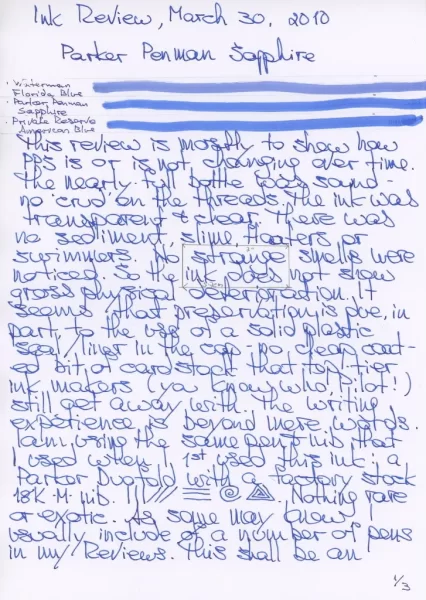 Ink Review, March 30, 2010
Parker Penman Sapphire
· Waterman
Florida Blue
· Parker Penman
Sapphire
· Private Reserve
American Blue
This review is mostly to show how
PPS is or is not changing over time.
The nearly-full bottle was sound -
no crud on the threads. The ink was
transparent & clear. There was
no sediment, slime, floaters or
swimmers. No strange smells were
noticed. So the ink does not show
gross physical deterioration. It
seems that preservation is due, in
part, to the use of a solid plastic
seal/liner in the cap - no clean coat-
ed bit of cardstock that top-tier
ink makers (you know who, Pilot!)
still get away with. The writing
experience is beyond mere words.
I am using the same pen & nib that
I used when I 1st used this ink: a
Parker Duofold with a factory stock
18K M nib. Nothing rare
or exotic. As some may know, I
usually include a number of pens
in my Reviews. This shall be an
1/3